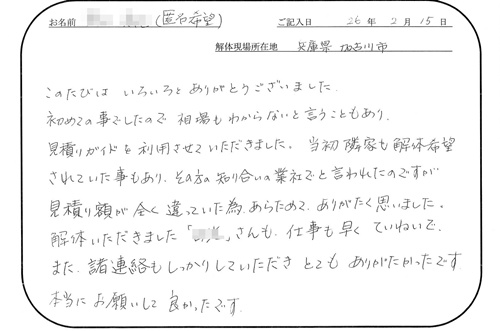 お名前 (匿名希望) ご記入日 26年 2月 15日
解体現場所在地 兵庫県 加古川市
このたびは いろいろと ありがとうございました。
初めての事でしたので 相場もわからないと言うこともあり、
見積りガイドを利用させていただきました。当初 隣家も解体希望
されていた事もあり、その方の知り合いの業社でと言われたのですが
見積り額が全く違っていた為、あらためて、ありがたく思いました。
解体いただきました「 」さんも、仕事も早く ていねいで、
また、諸連絡もしっかりしていただき とても ありがたかったです
本当に お願いして 良かったです。